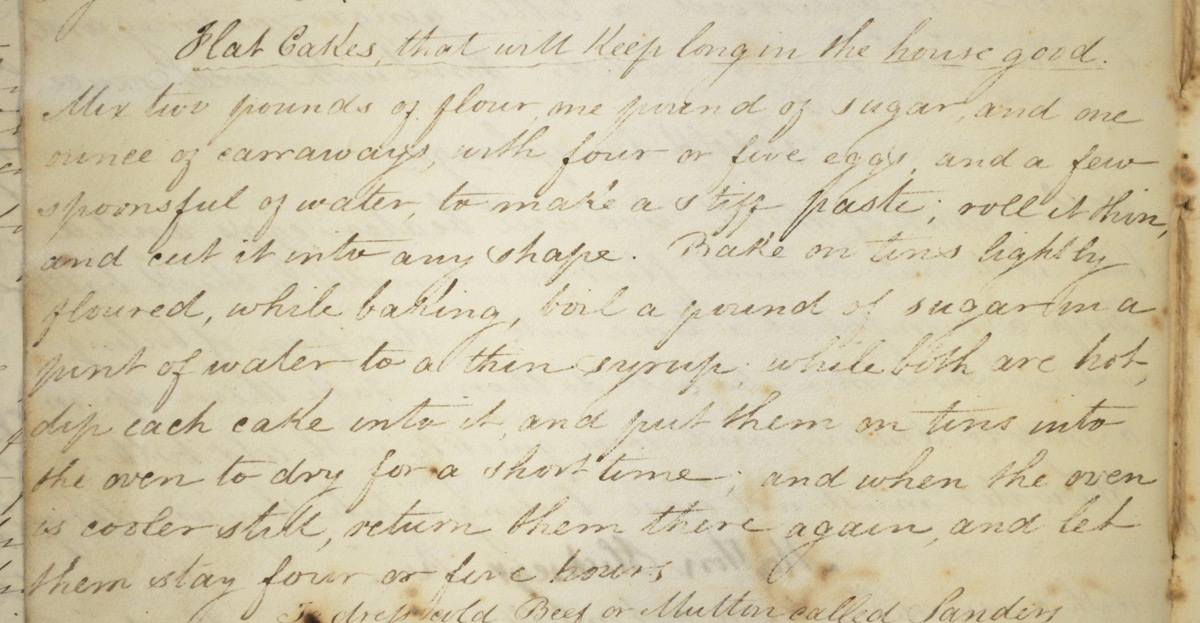 Flat Cakes, that will Keep long in the house good.
Mix two pounds of flour, one pound of sugar, and one
ounce of carraways, with four or five eggs, and a few
spoonsful of water, to make a stiff paste; roll it thin,
and cut it into any shape. Bake on tins lightly
floured, while baking, boil a pound of sugar in a
pint of water to a thin syrup; while both are hot,
dip each cake into it, and put them on tins into
the oven to dry for a short time; and when the oven
is cooler still, return them there again, and let
them stay four or five hours
To dress cold Beef or Mutton called Sanders